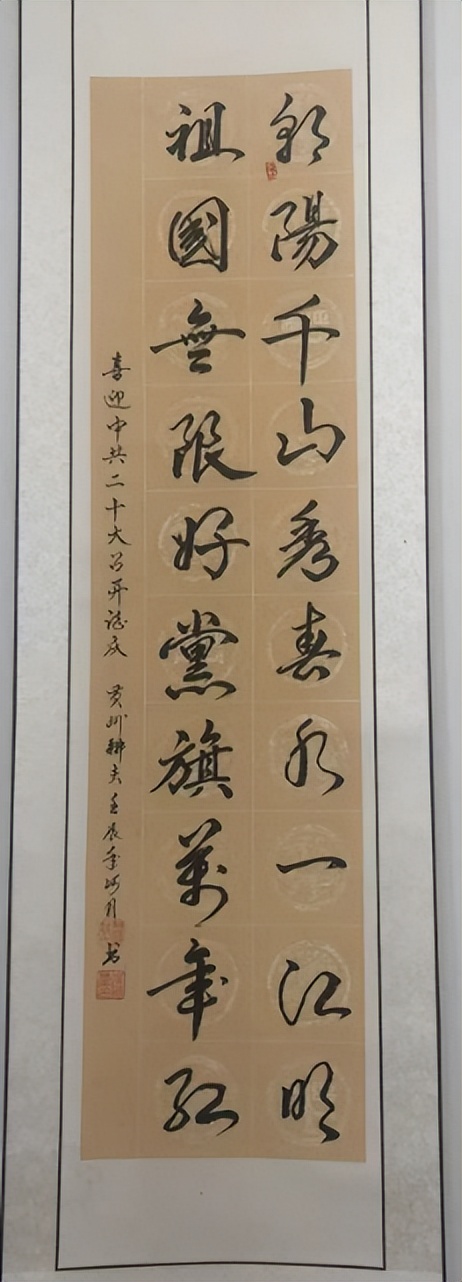 朝陽千山秀春水一江明
祖國無限好黨旗萬年紅
喜迎中共二十大召开誌庆 黄州耕夫壬辰年 月 书